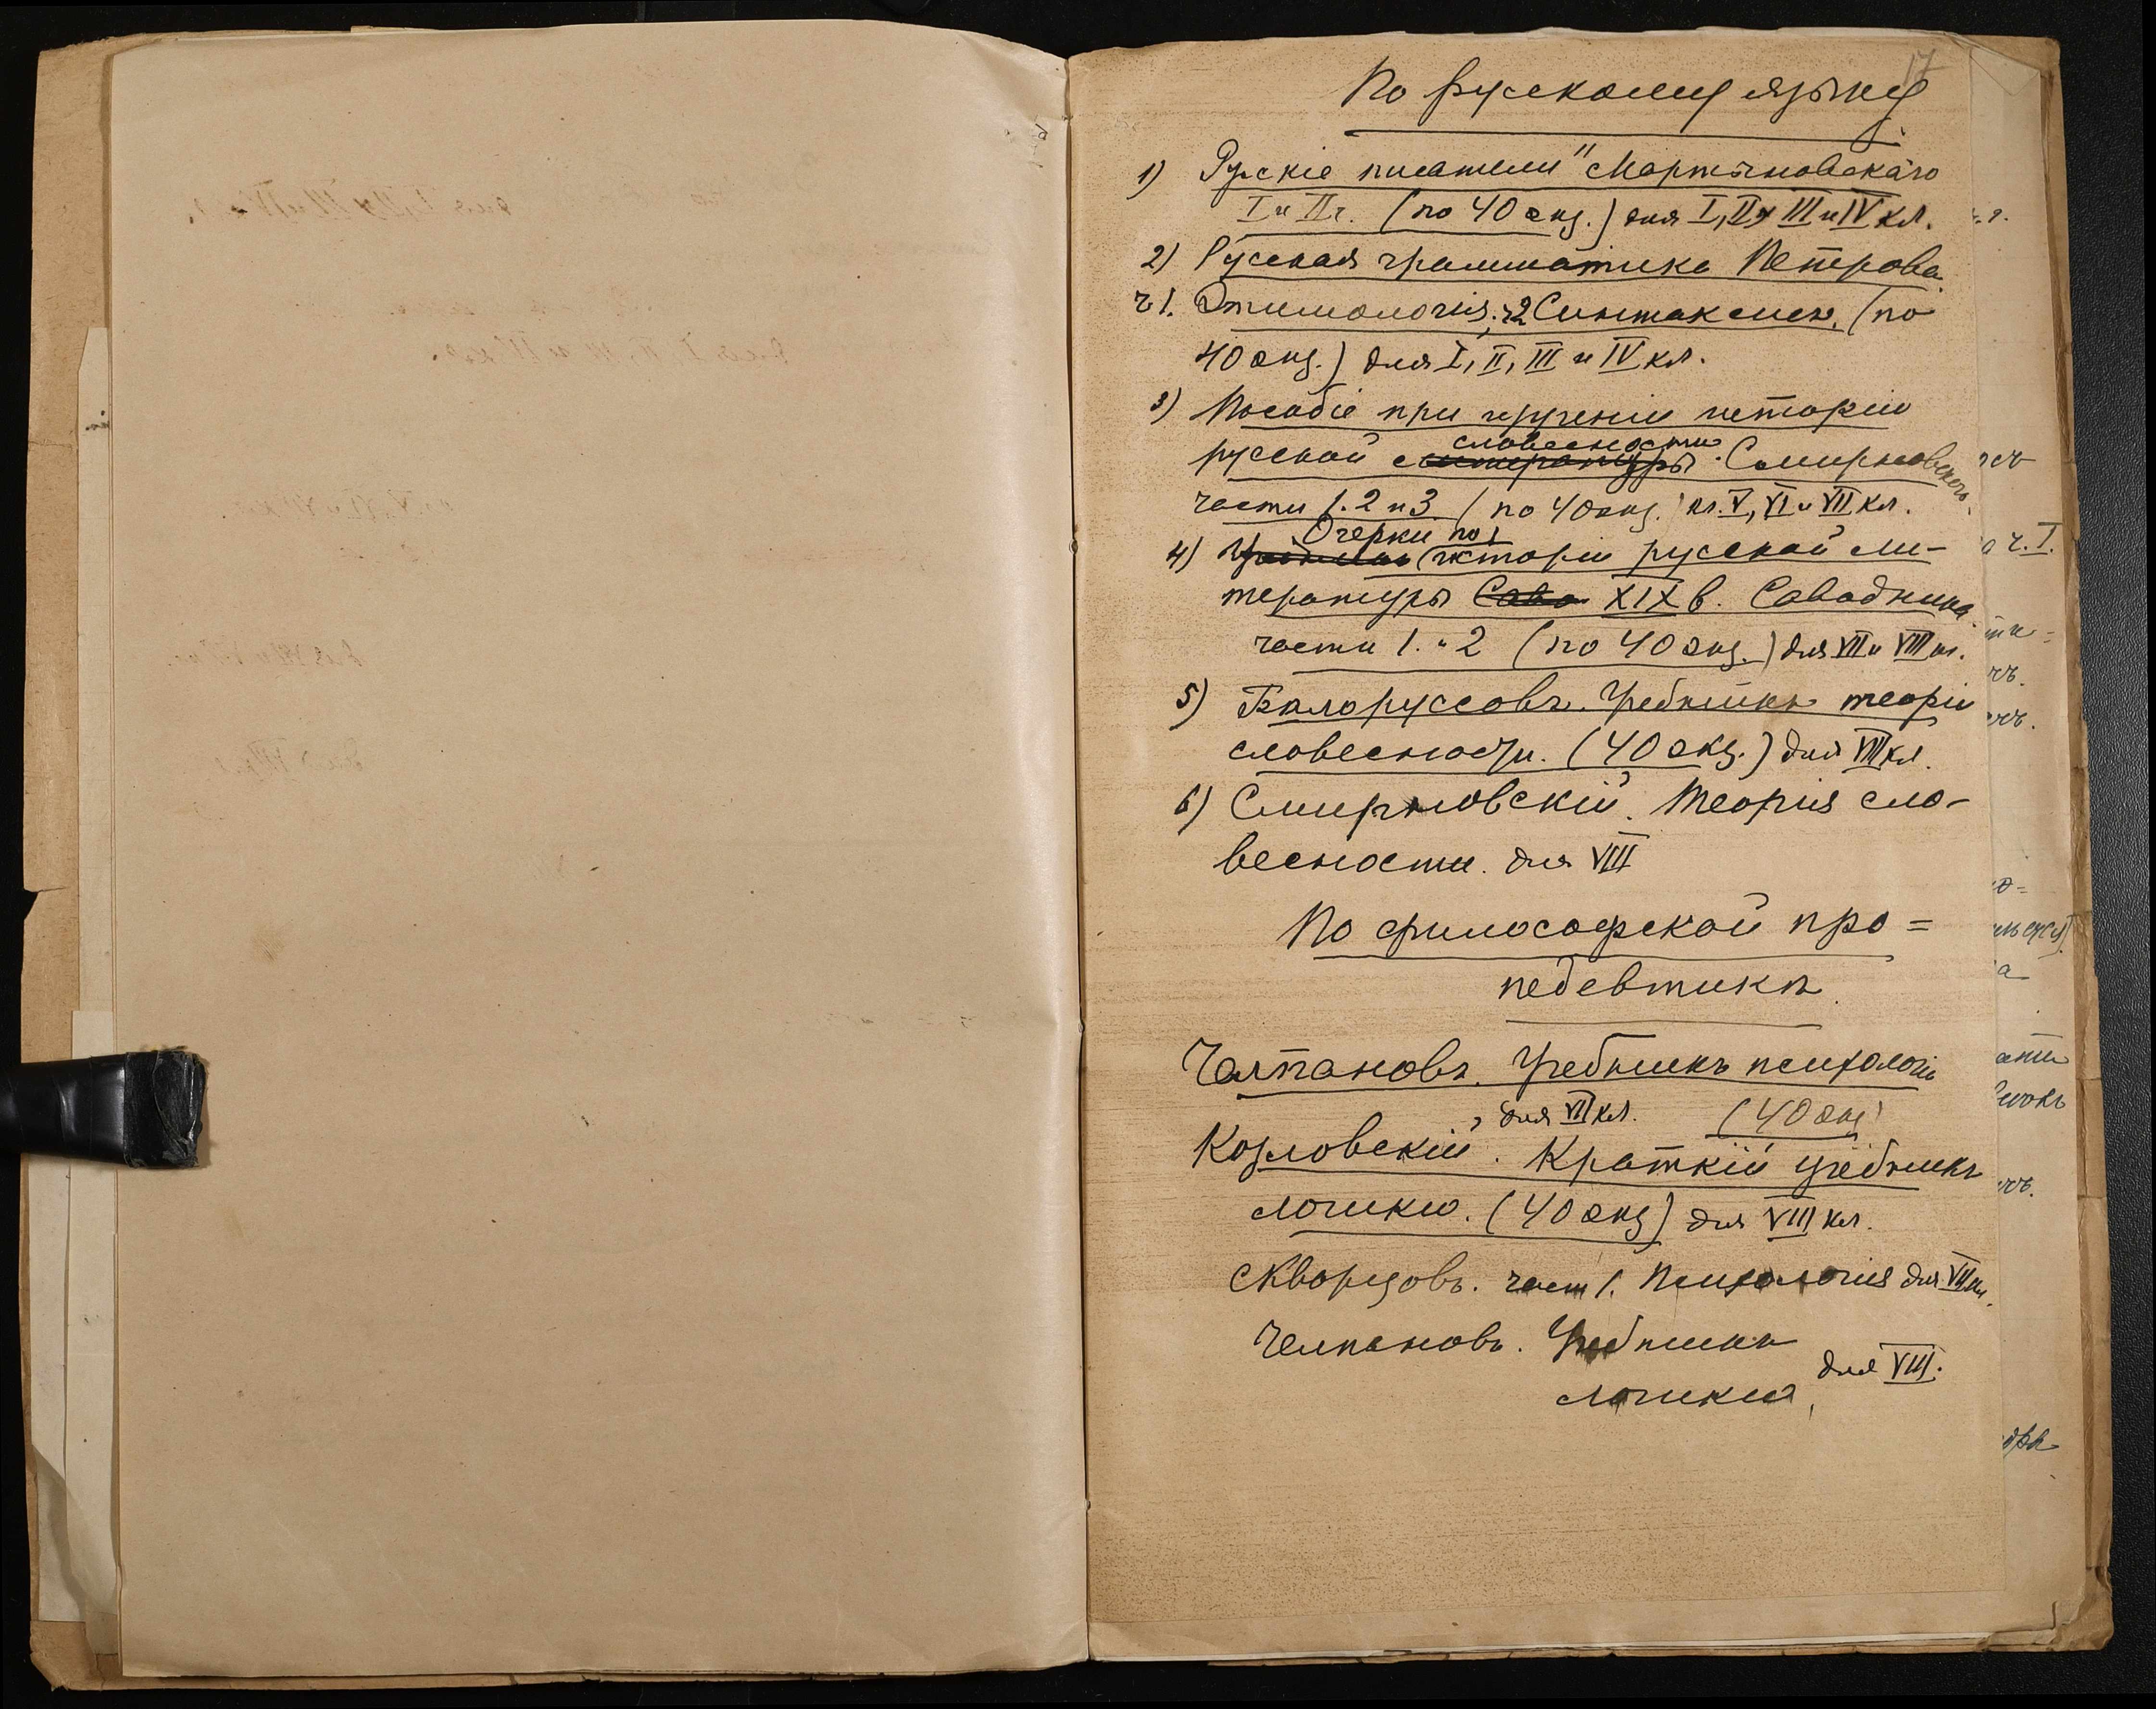 17
По русскому языку
1) Русскіе писатели" Мартыновскаго
I и II ч. (по 40 экз.) для I, II, III и IV кл.
2) Русская грамматика Петрова
ч 1. Этимологія, ч 2 Синтаксисъ. (по
40 экз.) для I, II, III и IV кл.
3) Пособіе при изученіи исторіи
словесности
русской литературы. Смирновскаго
части 1. 2 и 3 (по 40 экз.) кл. V, VI и VII кл.
Очерки по
4) Учебникъ исторіи русской ли-
тературы Саво XIX в. Саводника
части 1. и 2 (по 40 экз.) для VII и VIII кл.
5) Бѣлоруссовъ. Учебникъ теоріи
словесности. (40 экз.) для VIII кл.
6) Смирновскій. Теорія сло-
весности. для VIII
По философской про=
педевтикѣ.
Челпановъ. Учебникъ психологіи
для VII кл. (40 экз)
Козловскій. Краткій учебникъ
логики. (40 экз) для VIII кл.
Скворцовъ. част 1. Психологія для VII кл.
Челпановъ. Учебникъ
для VIII.
логики